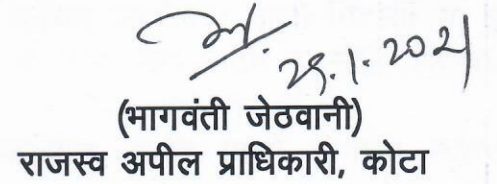 29.1.2021
(भागवंती जेठवानी)
राजस्व अपील प्राधिकारी, कोटा